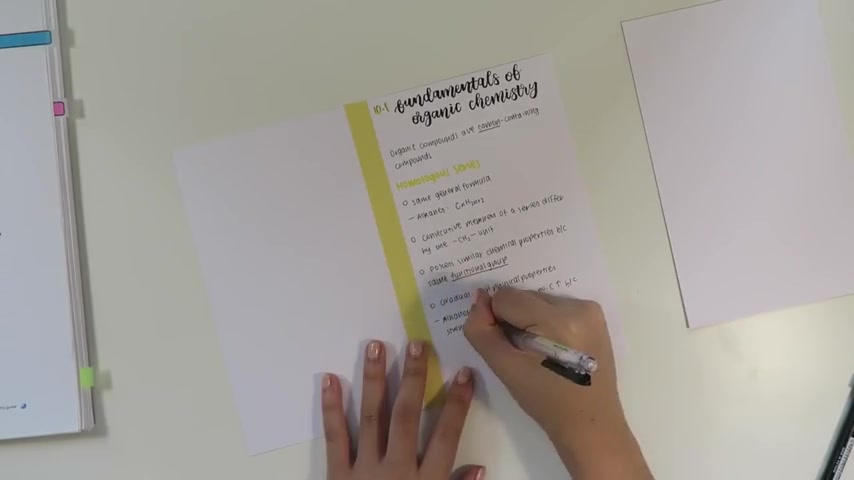 10.1 fundamentals of
organic chemistry
Organic compounds are carbon-containing
compounds
Homologous Series
o same general formula
- Alkanes: CnH2n+2
o consecutive members of a series differ
by one -CH2- unit
o possess similar chemical properties b/c
same functional group
o Gradual physical properties
- Alkanes C↑ b/c